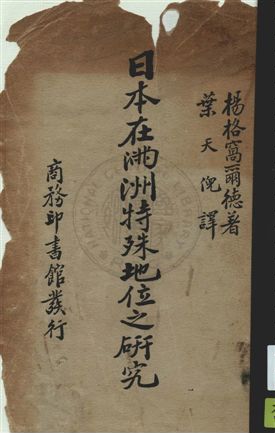 楊格窩爾德著
葉天倪譯
日本在滿洲特殊地位之研究
商務印書館發行